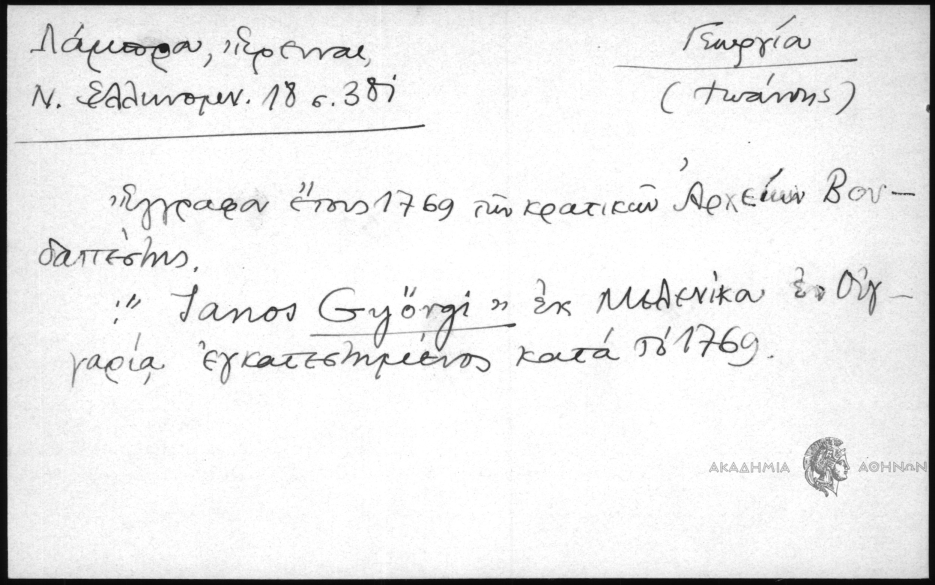 Λάμπρου, Ἔρευναι,
Ν. Ἑλληνομν. 18 σ. 381
Γεωργίου
(Ἰωάννης)
Ἔγγραφον ἔτους 1769 τῶν κρατικῶν Ἀρχείων Βου-
δαπέστης.
:" Ianos Györgi" ἐκ Μελενίκου ἐν Οὑγ-
γαρίᾳ ἐγκατεστημένος κατὰ τὸ 1769.
ΑΚΑΔΗΜΙΑ ΑΘΗΝΩΝ